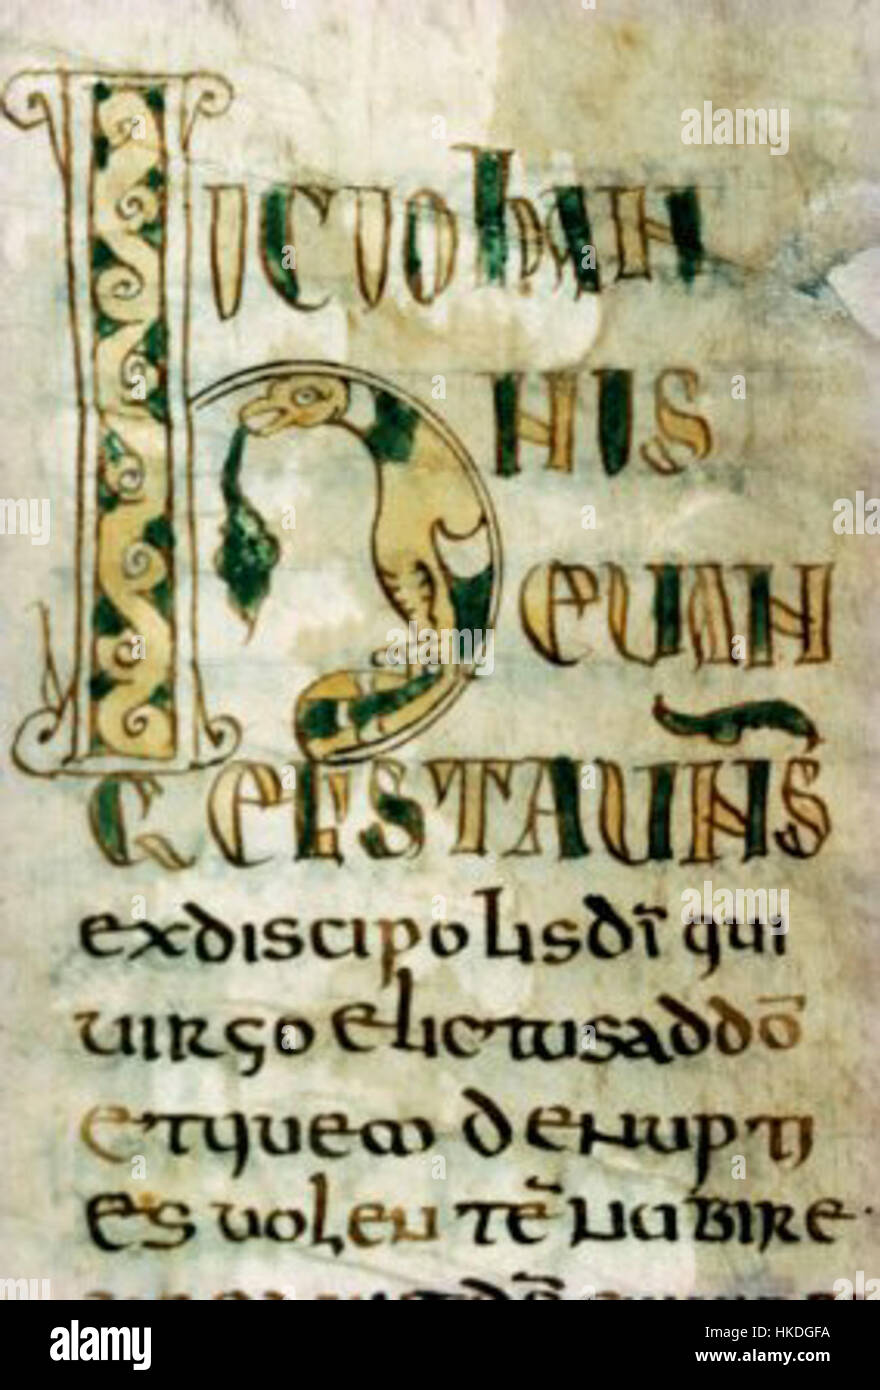 HICIOhAN
NIS
EUAN
GELISTAUN̄S
exdiscipolisdī qui
uirgo elictusaddō
etquem denupti
es uolentē nubire·
alamy
Image ID: HKDGFA
www.alamy.com